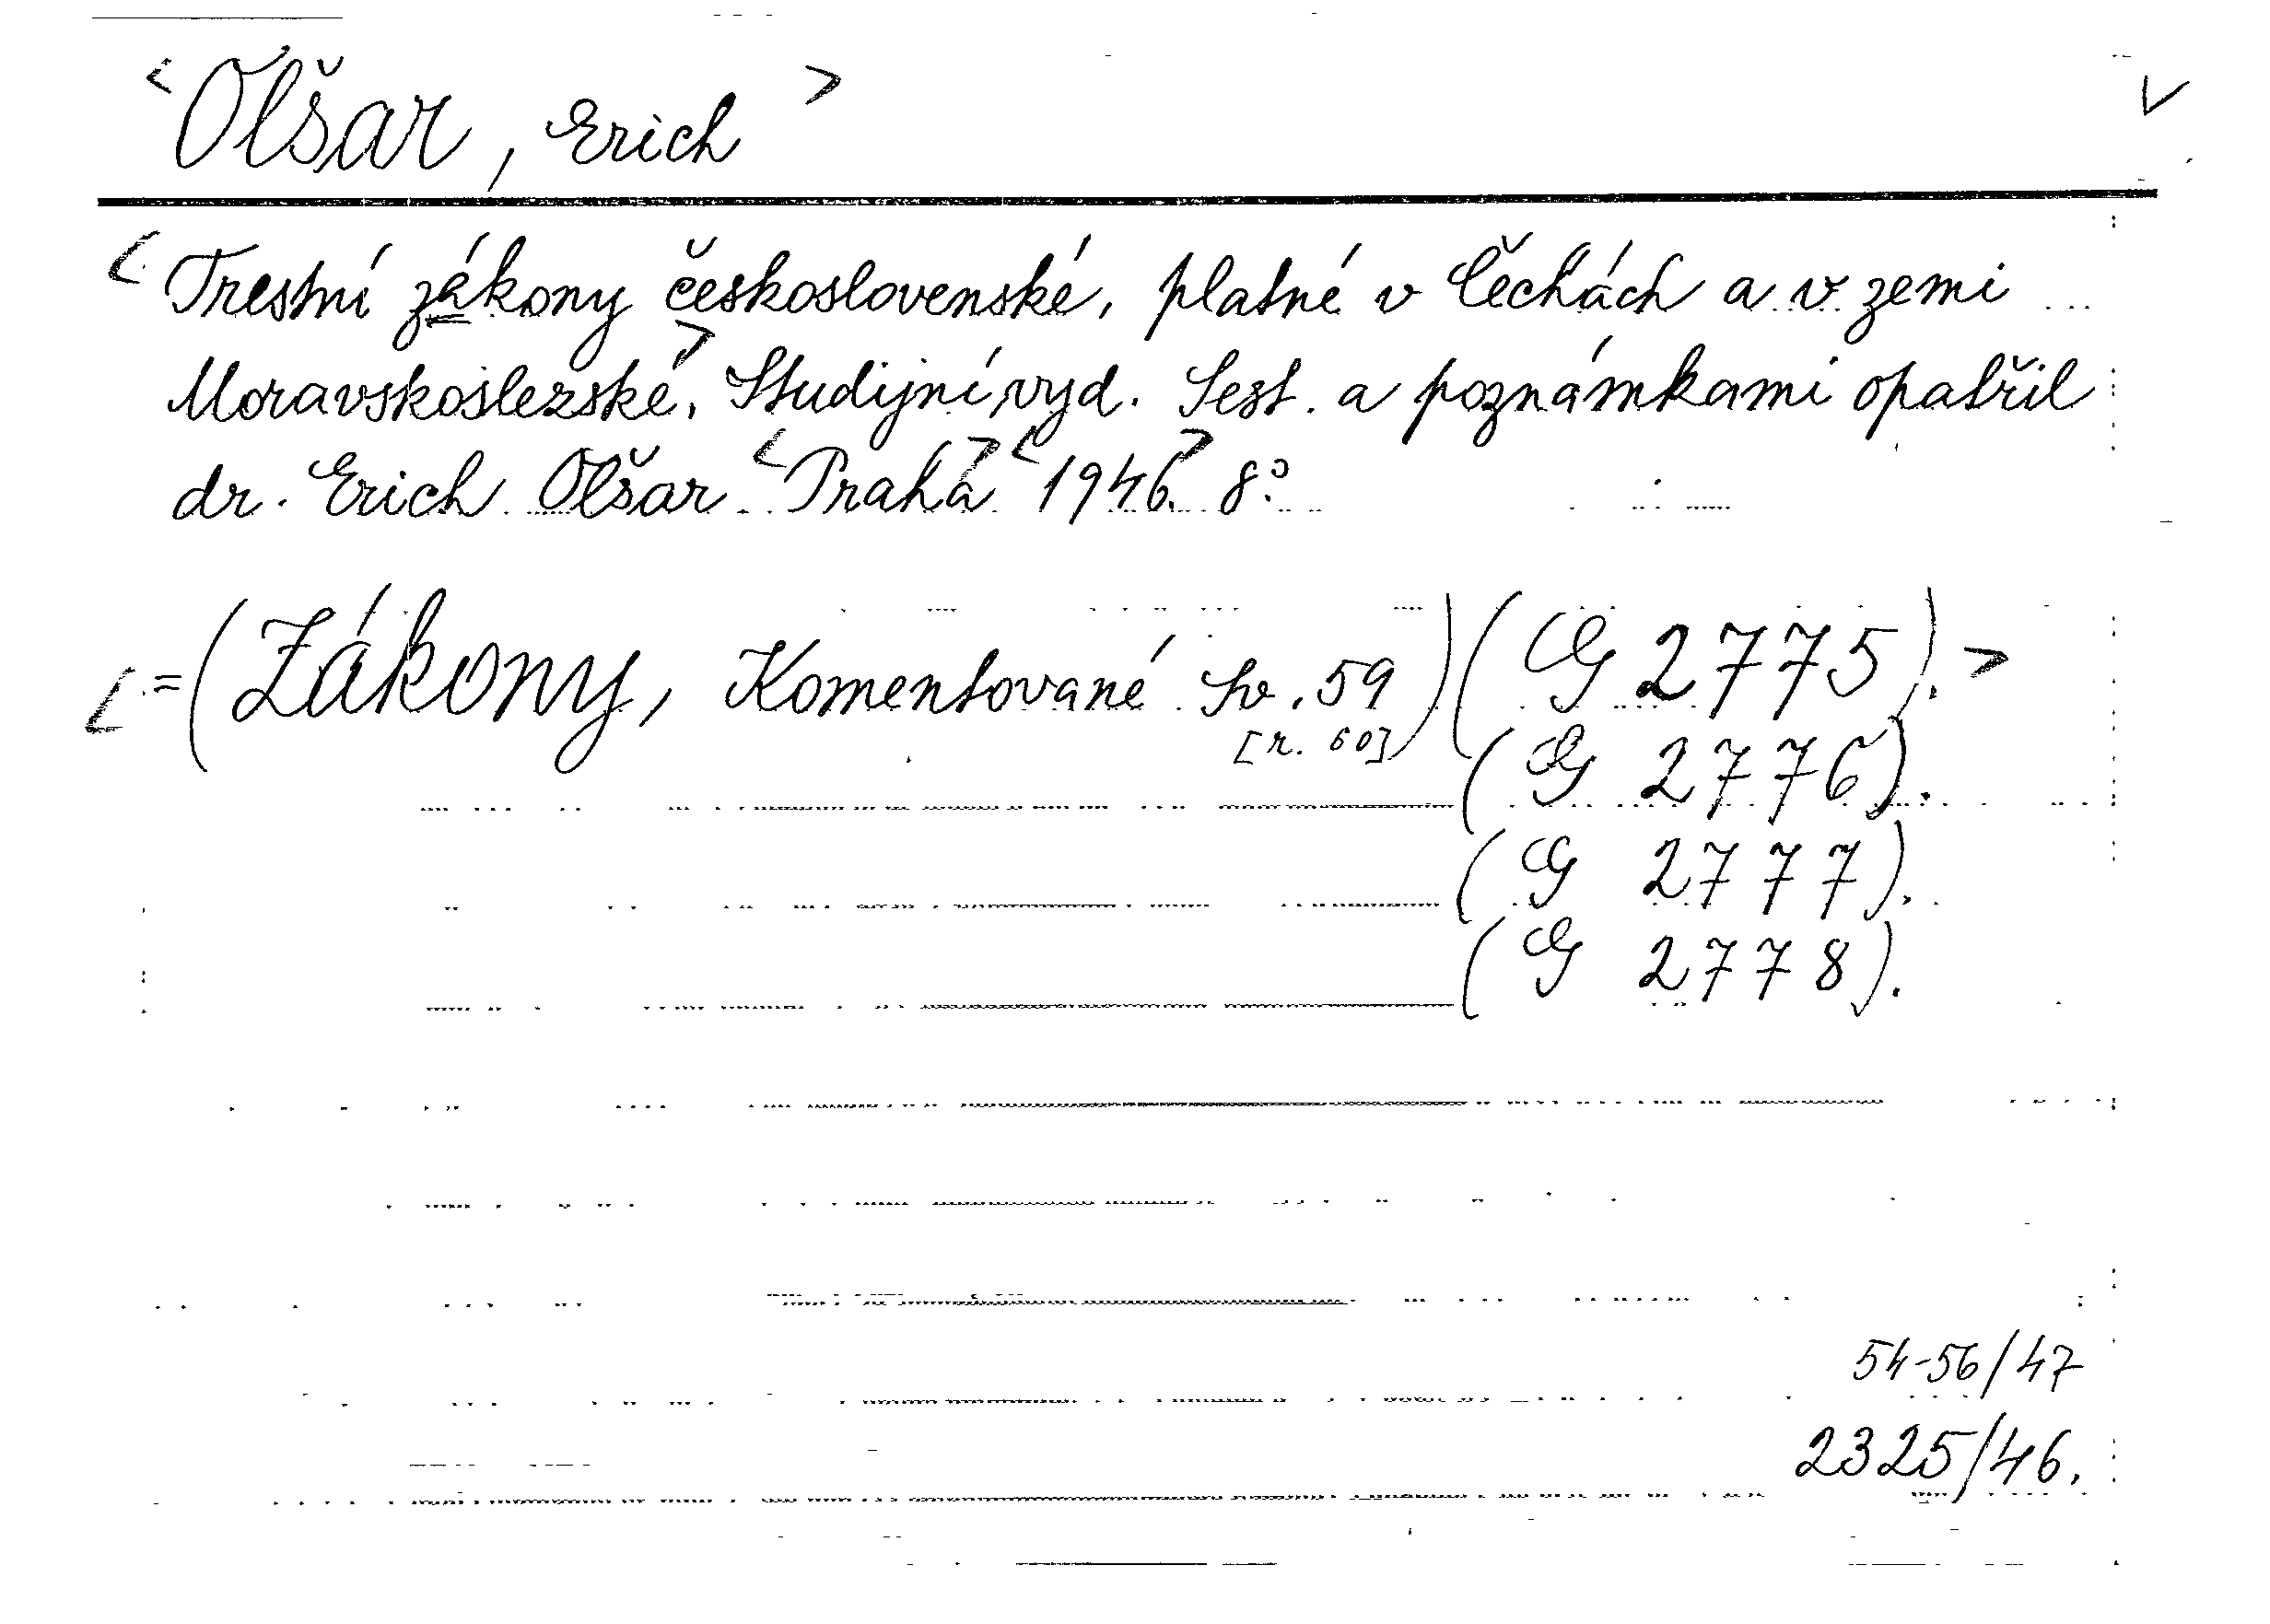 <Olšar, Erich> V
<Trestní zákony československé, platné v Čechách a v zemi
Moravskoslezské.> Studijní vyd. Sest. a poznámkami opatřil
dr. Erich Olšar. <Praha> <1946.> 8°.
[=(Zákony, Komentované Sv. 59) (G 2775).>
[r. 60] (G 2776).
(G 2777).
(G 2778).
54-56/47
2325/46.